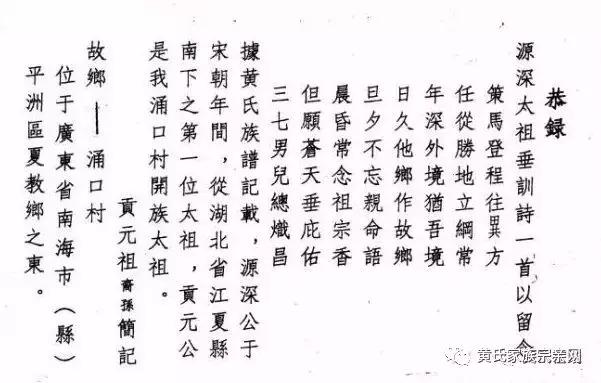 恭録
源深太祖垂訓詩一首以留念
策馬登程往異方
任從勝地立綱常
年深外境猶吾境
日久他鄉作故鄉
旦夕不忘親命語
晨昏常念祖宗香
但願蒼天垂庇佑
三七男兒總熾昌
據黄氏族譜記載，源深公于
宋朝年間，從湖北省江夏縣
南下之第一位太祖，貢元公
是我涌口村開族太祖。
貢元祖裔孫簡記
故鄉——涌口村
位于廣東省南海市（縣）
平洲區夏教鄉之東。
黄氏家族宗亲网